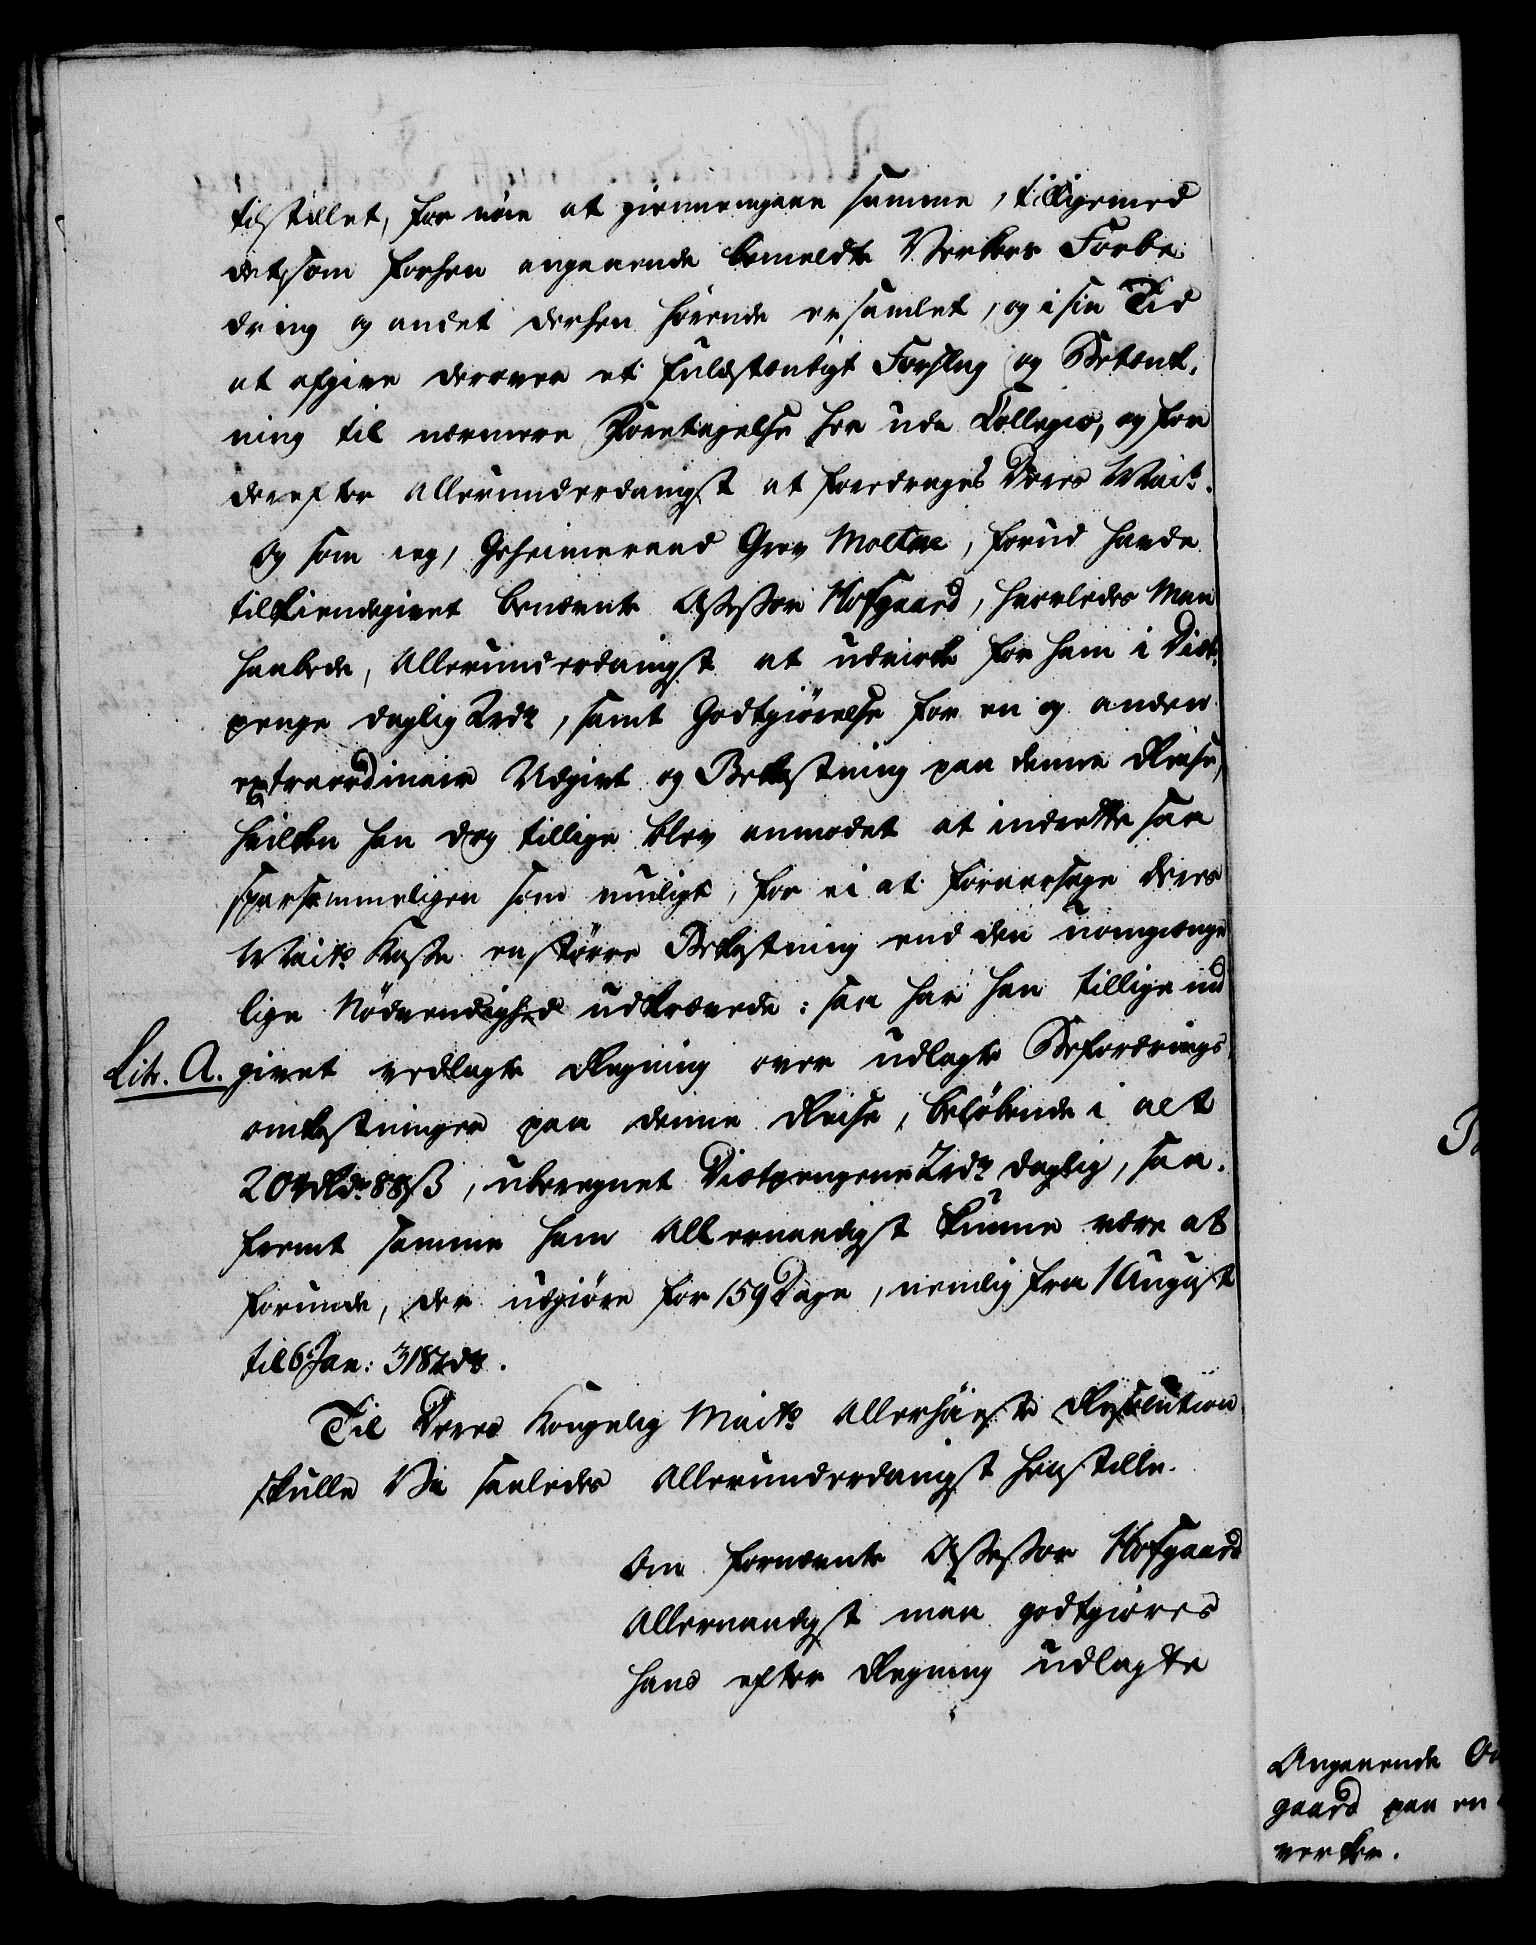 tilstillet, for nöie at giennemgaae samme, tilligemed
det, som forhen angaaende bemeldte Verkers Forbe
dring og andet derhen hörende er samlet, og i sin Tid
at afgive derover et fuldstændigt Forslag og Betænk,
ning til nærmere Foretagelse her udi Collegio, og for
derefter allerunderdanigst at foredrages Deres Mait.
Og som ieg, Geheimeraad Grev Moltke, forud havde
tilkiendegivet benævnte Assessor Hofgaard, hvorledes Man
haabede, allerunderdanigst at udvirke for ham i Diæt,
penge daglig 2rd, samt Godtgiörelse for en og anden
extraordinair Udgivt og Bekostning paa denne Reise,
hvilken han dog tillige blev anmodet at indrette saa
sparsommeligen som muligt, for ei at foraarsage Deres
Maits Kasse en större Bekostning end den uomgiænge
lige Nödvendighed udkrævede: saa har han tillige ind
Litr. A. givet vedlagte Regning over udlagte Befordrings,
omkostninger paa denne Reise, belöbende i alt
204 Rd 88 ß, uberegnet Diætpengene 2rd daglig, saa,
fremt samme ham allernaadigst kunne være at
forunde, der udgiöre for 159 Dage, nemlig fra 1 August
til 6 Jan: 318rd.
Til Deres Kongelig Maits allerhöieste Resolution
skulle Vi saaledes allerunderdanigst henstille.
Om fornævnte Assessor Hofgaard
allernaadigst maa godtgiöres
hans efter Regning udlagte
Angaaende
gaard paa en
verker.